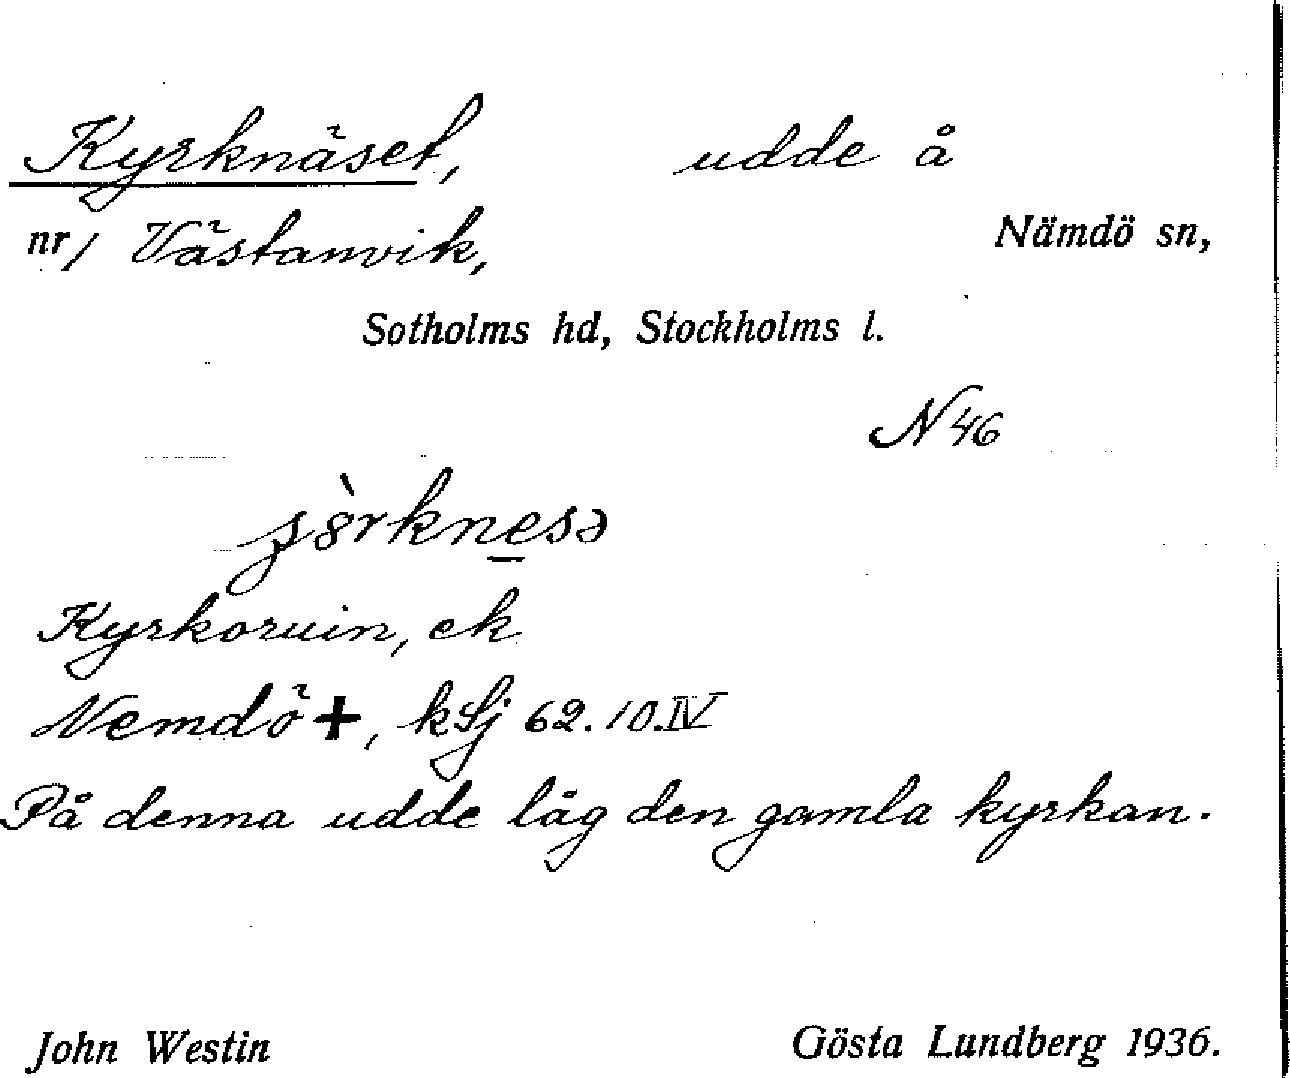 Kyrknäset, udde å
nr 1 Västanvik, Nämdö sn,
Sotholms hd, Stockholms l.
N 46
Kyrkoruin, ek
Nemdö +, kSj 62. 10.IV
På denna udde låg den gamla kyrkan.
John Westin Gösta Lundberg 1936.